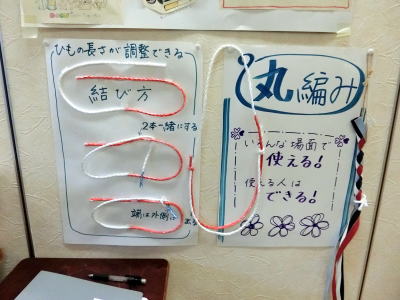 ひもの長さが調整できる
結び方
2本一緒にする
端は外側に出る
丸編み
いろんな場面で
使える!
使える人は
できる!